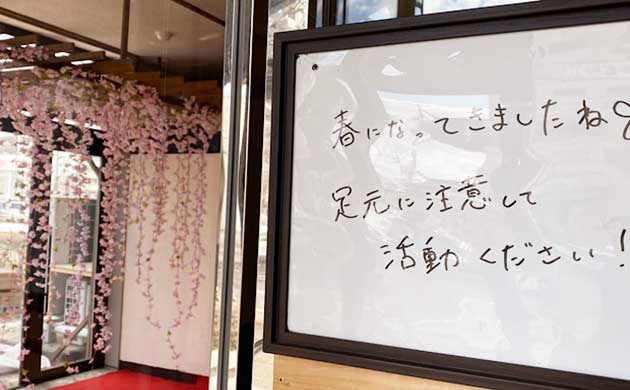 春になってきましたね
足元に注意して
活動ください!